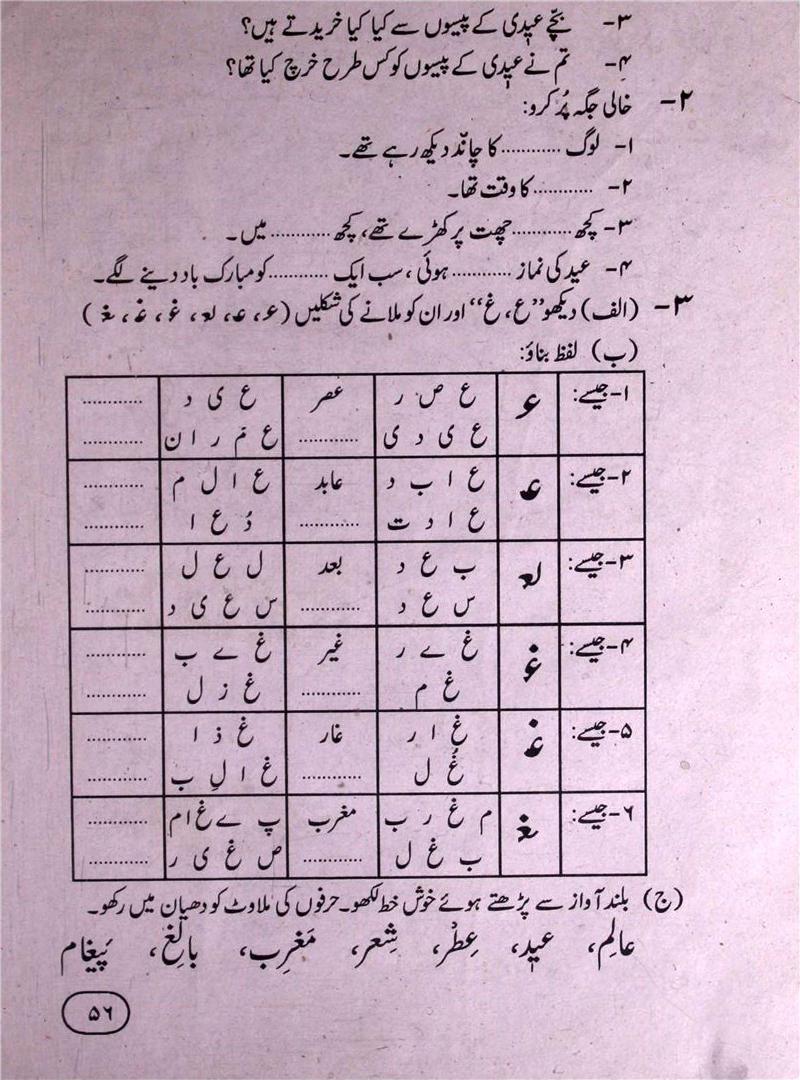 ۳- بچّے عیدی کے پیسوں سے کیا کیا خریدتے ہیں؟
۴- تم نے عیدی کے پیسوں کو کس طرح خرچ کیا تھا؟
۲- خالی جگہ پُر کرو:
۱- لوگ ............ کا چاند دیکھ رہے تھے۔
۲- ............ کا وقت تھا۔
۳- کچھ ............ چھت پر کھڑے تھے، کچھ ............ میں۔
۴- عید کی نماز ............ ہوئی، سب ایک ............ کو مبارک باد دینے لگے۔
۳- (الف) دیکھو ”ع، غ“ اور ان کو ملانے کی شکلیں (عـ، عـ، لعـ، غـ، غـ، ـغـ)
(ب) لفظ بناؤ:
۱- جیسے: عـ ع ص ر عصر ع ی د ............
ع ی د ی ............ ع مَ ر ا ن ............
۲- جیسے: عـ ع ا ب د عابد ع ا ل م ............
ع ا د ت ............ دُ ع ا ............
۳- جیسے: لعـ ب ع د بعد ل ع ل ............
س ع د ............ س ع ی د ............
۴- جیسے: غـ غ ے ر غیر غ ے ب ............
غ م ............ غ ز ل ............
۵- جیسے: غـ غ ا ر غار غ ذ ا ............
غُ ل ............ غ ا لِ ب ............
۶- جیسے: ـغـ م غ ر ب مغرب پ ے غ ا م ............
ب غ ل ............ ص غ ی ر ............
(ج) بلند آواز سے پڑھتے ہوئے خوش خط لکھو۔ حرفوں کی ملاوٹ کو دھیان میں رکھو۔
عالِم، عید، عِطْر، شِعر، مَغرِب، بالِغ، پَیغام
۵۶